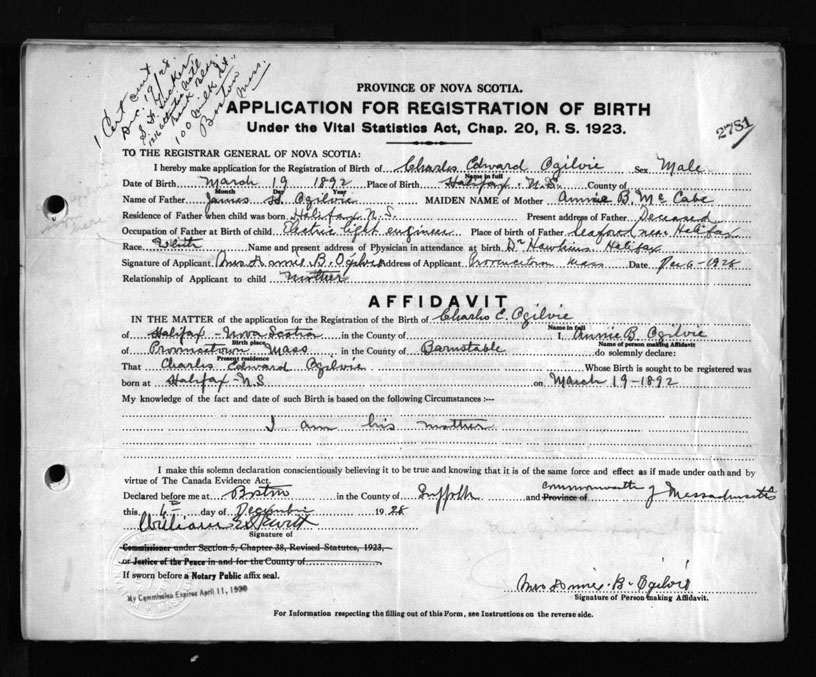 1 Cert sent
Dec 19/28
100 Milk St.,
Boston
Mass.
PROVINCE OF NOVA SCOTIA.
APPLICATION FOR REGISTRATION OF BIRTH
Under the Vital Statistics Act, Chap. 20, R. S. 1923.
2781
TO THE REGISTRAR GENERAL OF NOVA SCOTIA:
I hereby make application for the Registration of Birth of Charles Edward Ogilvie Sex Male
Name in full
Date of Birth March 19 1892 Place of Birth Halifax. N.S. County of
Month Day Year
Name of Father James H. Ogilvie MAIDEN NAME of Mother Annie B. Mc Cabe
Residence of Father when child was born Halifax N.S. Present address of Father Deceased
Occupation of Father at Birth of child Electric light engineer Place of birth of Father Seaforth near Halifax
Race White Name and present address of Physician in attendance at birth Dr Hawkins Halifax
Signature of Applicant Mrs Annie B. Ogilvie Address of Applicant Provincetown Mass Date Dec 6-1928
Relationship of Applicant to child Mother
AFFIDAVIT
IN THE MATTER of the application for the Registration of the Birth of Charles E. Ogilvie
Name in full
of Halifax - Nova Scotia in the County of I, Annie B. Ogilvie
Birth place Name of person making Affidavit
of Provincetown Mass in the County of Barnstable do solemnly declare:
Present residence
That Charles Edward Ogilvie Whose Birth is sought to be registered was
born at Halifax-N.S. on March 19-1892
My knowledge of the fact and date of such Birth is based on the following Circumstances :—
I am his mother
I make this solemn declaration conscientiously believing it to be true and knowing that it is of the same force and effect as if made under oath and by
virtue of The Canada Evidence Act.
Declared before me at Boston in the County of Suffolk and Province of Commonwealth of Massachusetts
this 6th day of December 1928
William
Signature of
Commissioner under Section 5, Chapter 38, Revised Statutes, 1923,
or Justice of the Peace in and for the County of
If sworn before a Notary Public affix seal.
My Commission Expires April 11, 1930
Mrs Annie B. Ogilvie
Signature of Person making Affidavit.
For Information respecting the filling out of this Form, see Instructions on the reverse side.